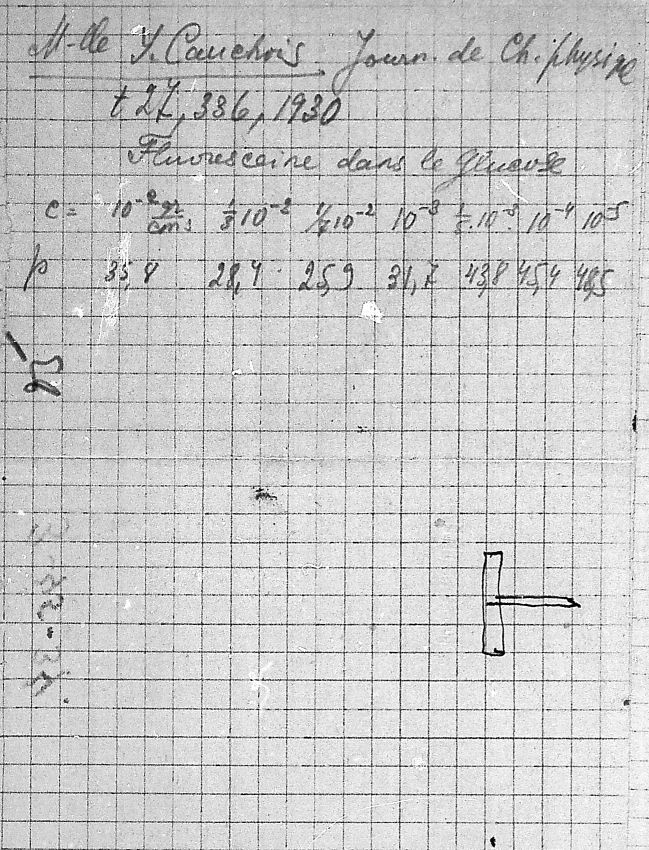 M-lle Y. Cauchois Journ. de Ch. physiqe
t 27, 336, 1930
Fluoresceine dans le glucose
c = 10⁻² gr/cm³ 10⁻² 10⁻² 10⁻³ 10⁻³ 10⁻⁴ 10⁻⁵
p 35,8 28,4 25,9 31,7 43,8 45,4 48,5